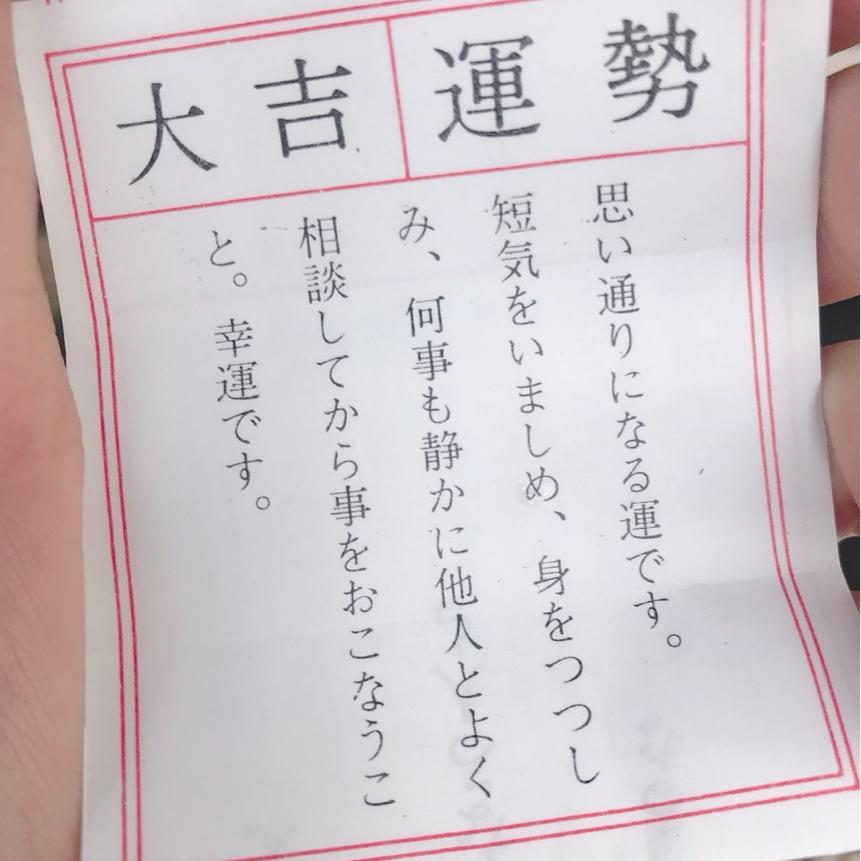 勢運
吉大
思い通りになる運です。
短気をいましめ、身をつつし
み、何事も静かに他人とよく
相談してから事をおこなうこ
と。幸運です。